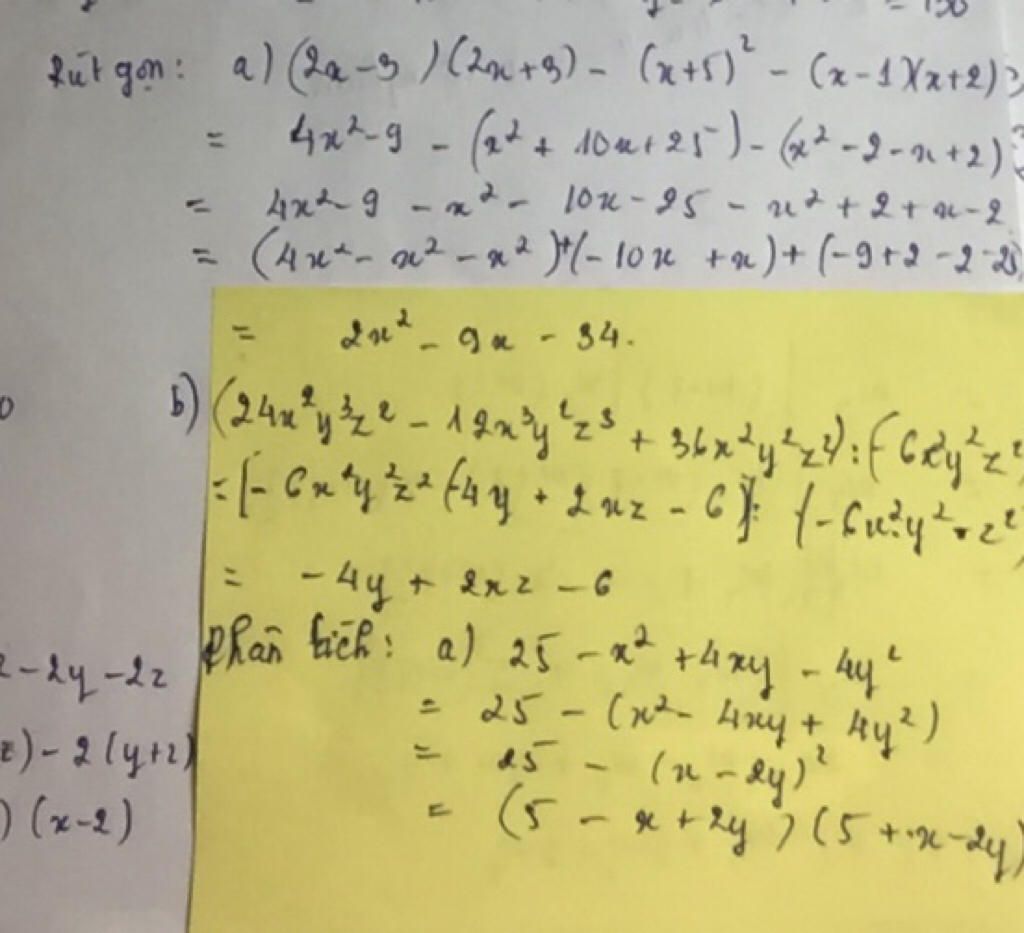 = 130
Rút gọn: a) (2x-3)(2x+3) - (x+5)² - (x-1)(x+2)
= 4x²-9 - (x² + 10x+25) - (x²-2-x+2)
= 4x²-9 - x² - 10x-25 - x²+2+x-2
= (4x²- x² - x²)+(-10x +x)+(-9+2-2-25)
= 2x² - 9x - 34.
b) (24x²y³z² - 12x³y²z³ + 36x²y²z²):(-6x²y²z²
= [-6x²y²z²(-4y + 2xz - 6)]: (-6x²y².z²
= -4y + 2xz - 6
Phân tích: a) 25 - x² +4xy - 4y²
= 25 - (x²- 4xy + 4y²)
= 25 - (x - 2y)²
= (5 - x + 2y)(5 + x - 2y)
-2y-2z
z)-2(y+z)
)(x-2)